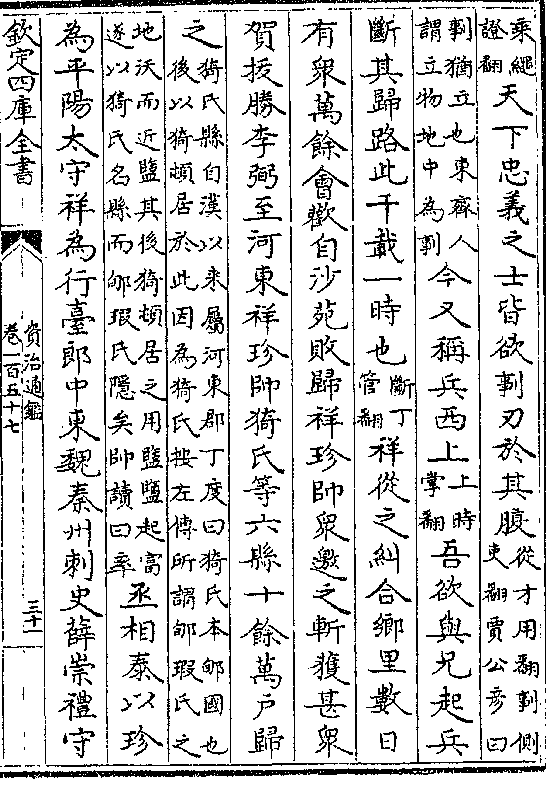 乘繩證翻天下忠義之士皆欲剚刃於其腹從才用翻剚側吏翻賈公彥曰
剚猶立也東齊人謂立物地中為剚今又稱兵西上上時掌翻吾欲與兄起兵
斷其歸路此千載一時也斷丁管翻祥從之糾合鄉里數日
有衆萬餘會歡自沙苑敗歸祥珍帥衆邀之斬獲甚衆
賀拔勝李弼至河東祥珍帥猗氏等六縣十餘萬戶歸
之猗氏縣自漢以來屬河東郡丁度曰猗氏本郇國也後以猗頓居於此因為猗氏按左傳所謂郇瑕氏之
地沃而近鹽其後猗頓居之用鹽鹽起富遂以猗氏名縣而郇瑕氏隱矣帥讀曰率丞相泰以珍
為平陽太守祥為行臺郎中東魏秦州刺史薛崇禮守
欽定四庫全書
資治通鑑
卷一百五十七
三十一